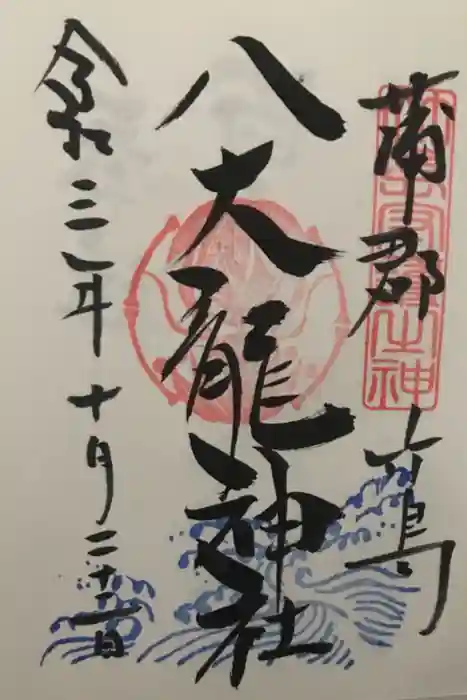 蒲郡 竹島
八大龍神社
令和三年十月二十二日